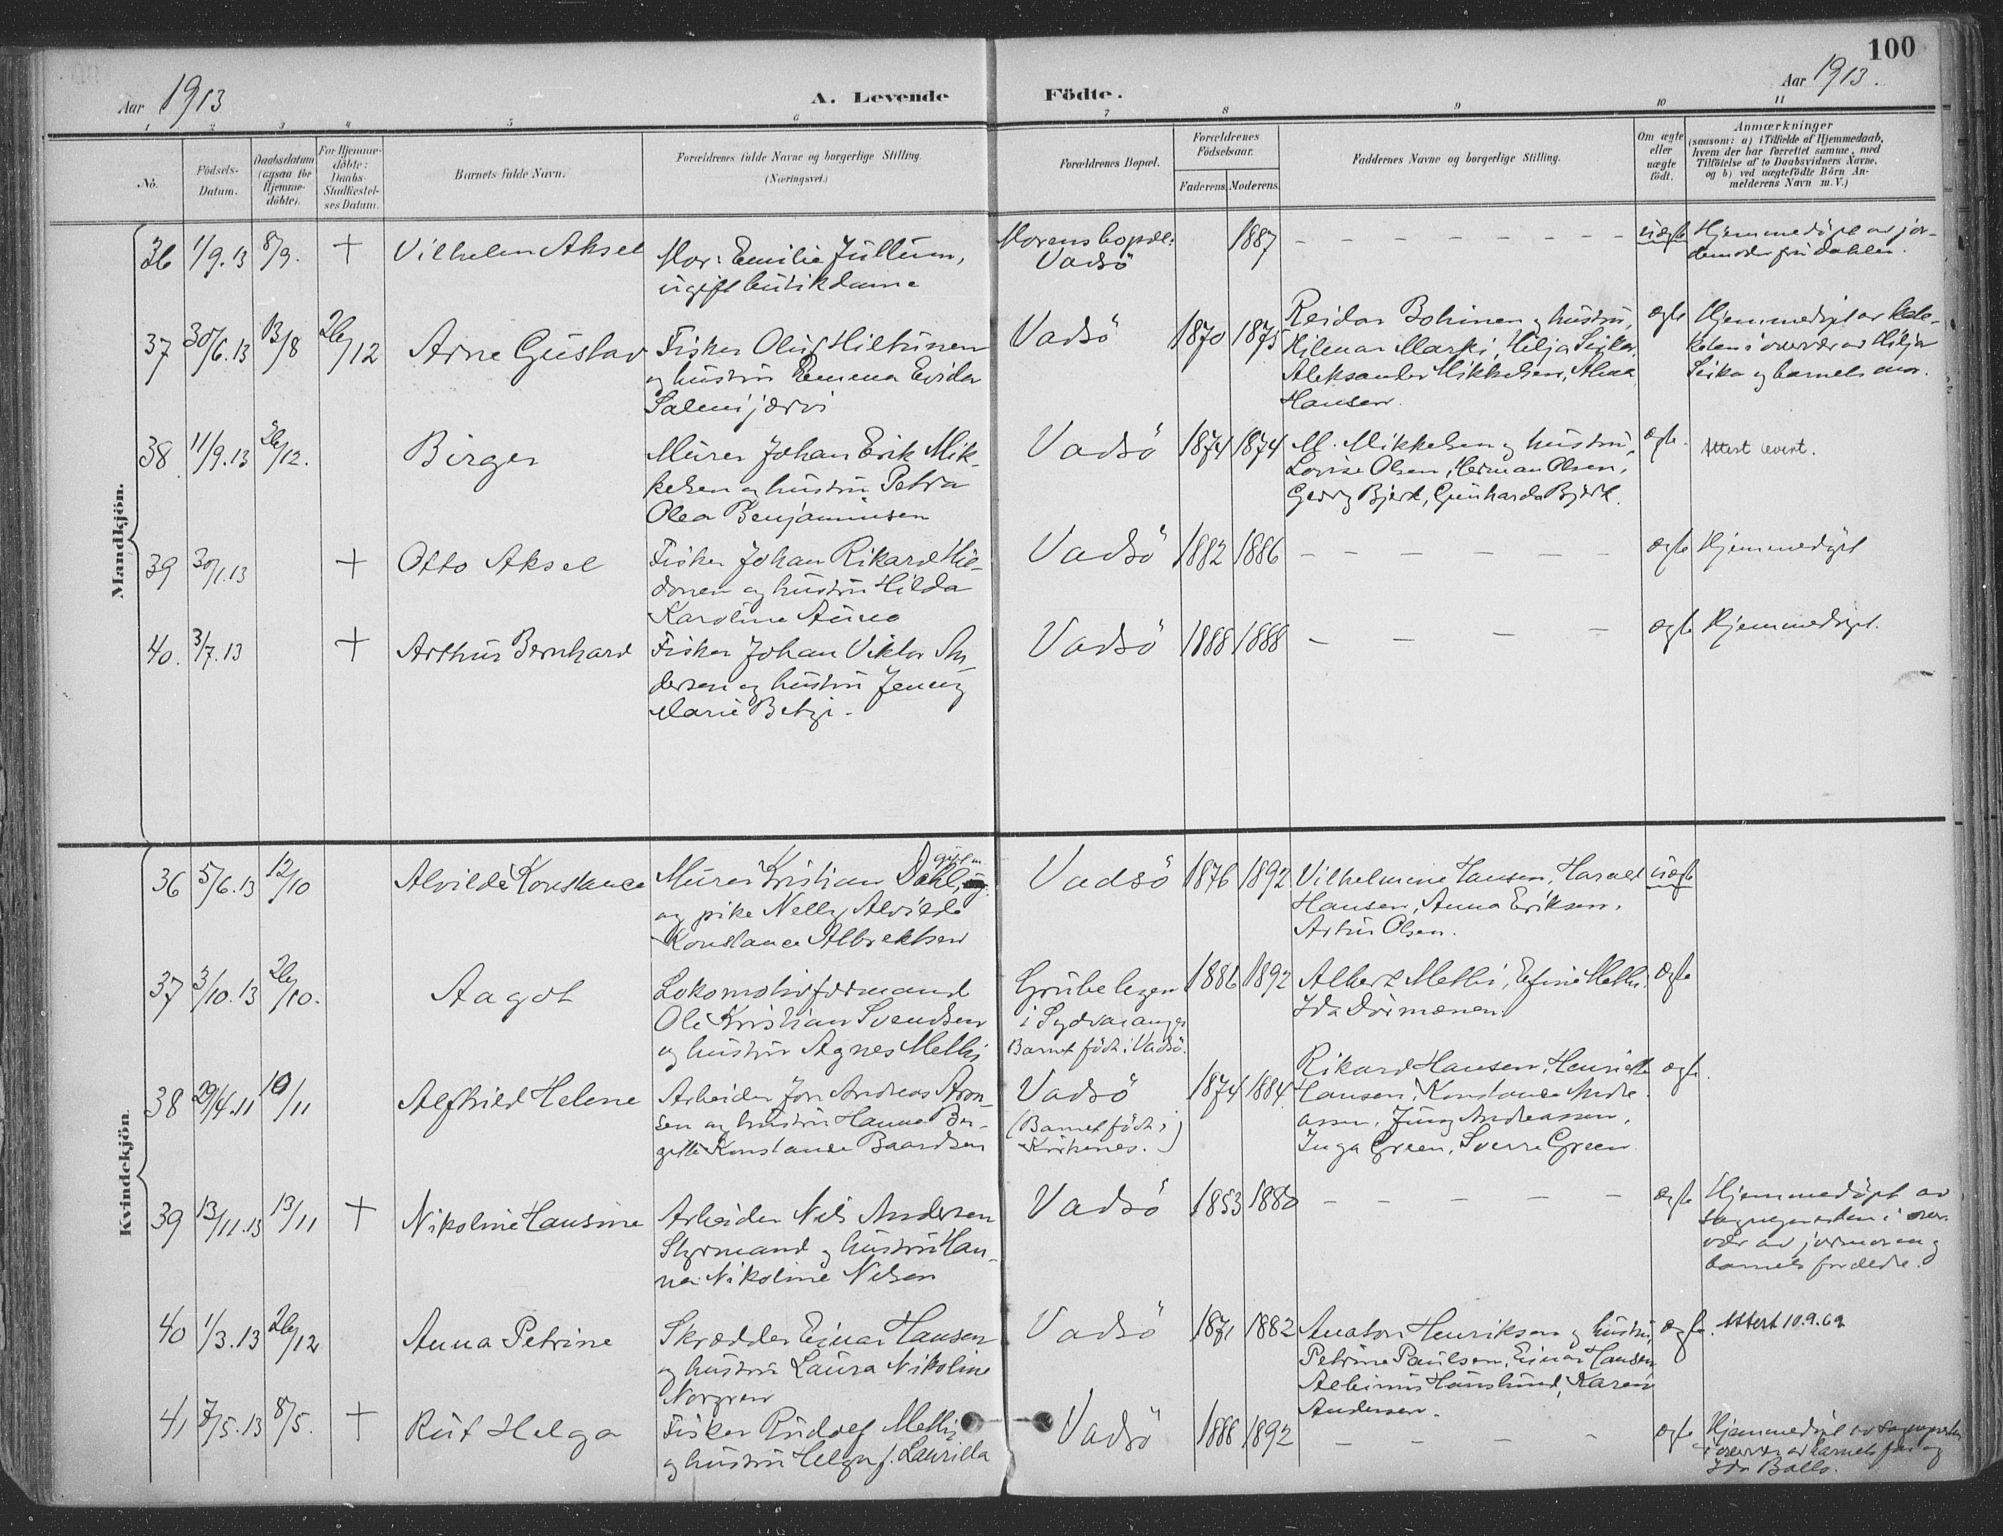 100
Aar 1913
A. Levende Födte.
Aar 1913.
1 2 3 4 5 6 7 8 9 10 11
No.
Födsels-Datum.
Daabsdatum (ogsaa for Hjemmedöbte).
For Hjemmedöbte: Daabs Stadfæstelses Datum.
Barnets fulde Navn.
Forældrenes fulde Navne og borgerlige Stilling.
(Næringsvei.)
Forældrenes Bopæl.
Forældrenes Födselsaar.
Faderens. Moderens.
Faddernes Navne og borgerlige Stilling.
Om ægte eller uægte födt.
Anmærkninger
(saasom: a) i Tilfælde af Hjemmedaab, hvem der har forrettet samme, med Tilföielse af to Daabsvidners Navne, og b) ved uægtefödte Börn Anmelderens Navn m. V.)
Mandkjön.
36 1/9.13 8/9. + Vilhelm Aksel
Mor: Emilie Jullum,
ugift butikdame
Morens bopæl:
Vadsö
1887
uægte
Hjemmedöpt av jor-
demoder fru Dahlen.
37 30/6.13 13/8 26/12 Arne Gustav
Fisker Oluf Hiltunen
og hustru Emma Evida
Salmijærvi
Vadsö 1870 1875
Reidar Bohinen og hustru,
Hilmar Marki, Hilja Siika,
Aleksander Mikkelsen, Alma
Hansen.
ægte
Hjemmedöpt av kate-
keten i overvær av Hilja
Siika og barnets mor.
38 11/9.13 26/12. Birger
Murer Johan Erik Mik-
kelsen og hustru Petra
Olea Benjaminsen
Vadsö 1874 1874
M. Mikkelsen og hustru,
Lovise Olsen, Herman Olsen,
Georg Bjerk, Gunharda Bjerk.
ægte.
Attert ævent.
39 30/1.13 + Otto Aksel
Fisker Johan Rikard Hil-
donen og hustru Hilda
Karoline Auno
Vadsö 1882 1886
ægte Hjemmedöpt
40. 3/7.13 + Arthur Bernhard
Fisker Johan Viktor An-
dersen og hustru Jenny
Marie Betzi.
Vadsö 1888 1888
ægte Hjemmedöpt.
Kvindekjön.
36 5/6.13 12/10 Alvilde Konstance
Murer Kristian Dahl, gift m.
og pike Nelly Alvilde
Konstance Albrektsen
Vadsö 1876 1892
Vilhelmine Hansen, Harald
Hansen, Anna Eriksen,
Artur Olsen.
uægte
37 3/10.13 26/10. Aagot
Lokomotivformand
Ole Kristian Svendsen
og hustru Agnes Methi
Grubelegen
i Sydvaranger
Barnet födt i Vadsö.
1886 1892
Albert Methi, Efine Methi,
Ida Dörmænen
ægte
38 29/4.11 10/11 Alfhild Helene
Arbeider Jon Andreas Aron-
sen og hustru Hanna Ber-
gitte Konstanse Baardsen
Vadsö
(Barnet födt i
Kirkenes.)
1874 1884.
Rikard Hansen, Henriette
Hansen, Konstance Andre-
assen, Jung Andreassen,
Inga Green, Sverre Green
ægte.
39 13/11.13 13/11 + Nikoline Hansine
Arbeider Nils Andersen
Styrmand og hustru Han-
na Nikoline Nilsen
Vadsö 1853 1880
ægte
Hjemmedöpt av
sognepresten i over-
vær av jormoren og
barnets forældre.
40 1/3.13 26/12 Anna Petrine
Skrædder Einar Hansen
og hustru Laura Nikoline
Norgren
Vadsö 1871 1882
Anaton Henriksen og hustru,
Petrine Paulsen, Einar Hansen
Albinus Hauslund, Karen
Andersen.
ægte. Attert 10.9.69
41 7/5.13 8/5. + Rut Helga
Fisker Rudolf Methi
og hustru Helga f. Laurilla
Vadsö 1888 1892
ægte
Hjemmedöpt av sognepresten
i overvær av barnets far og
Ida Ballo.